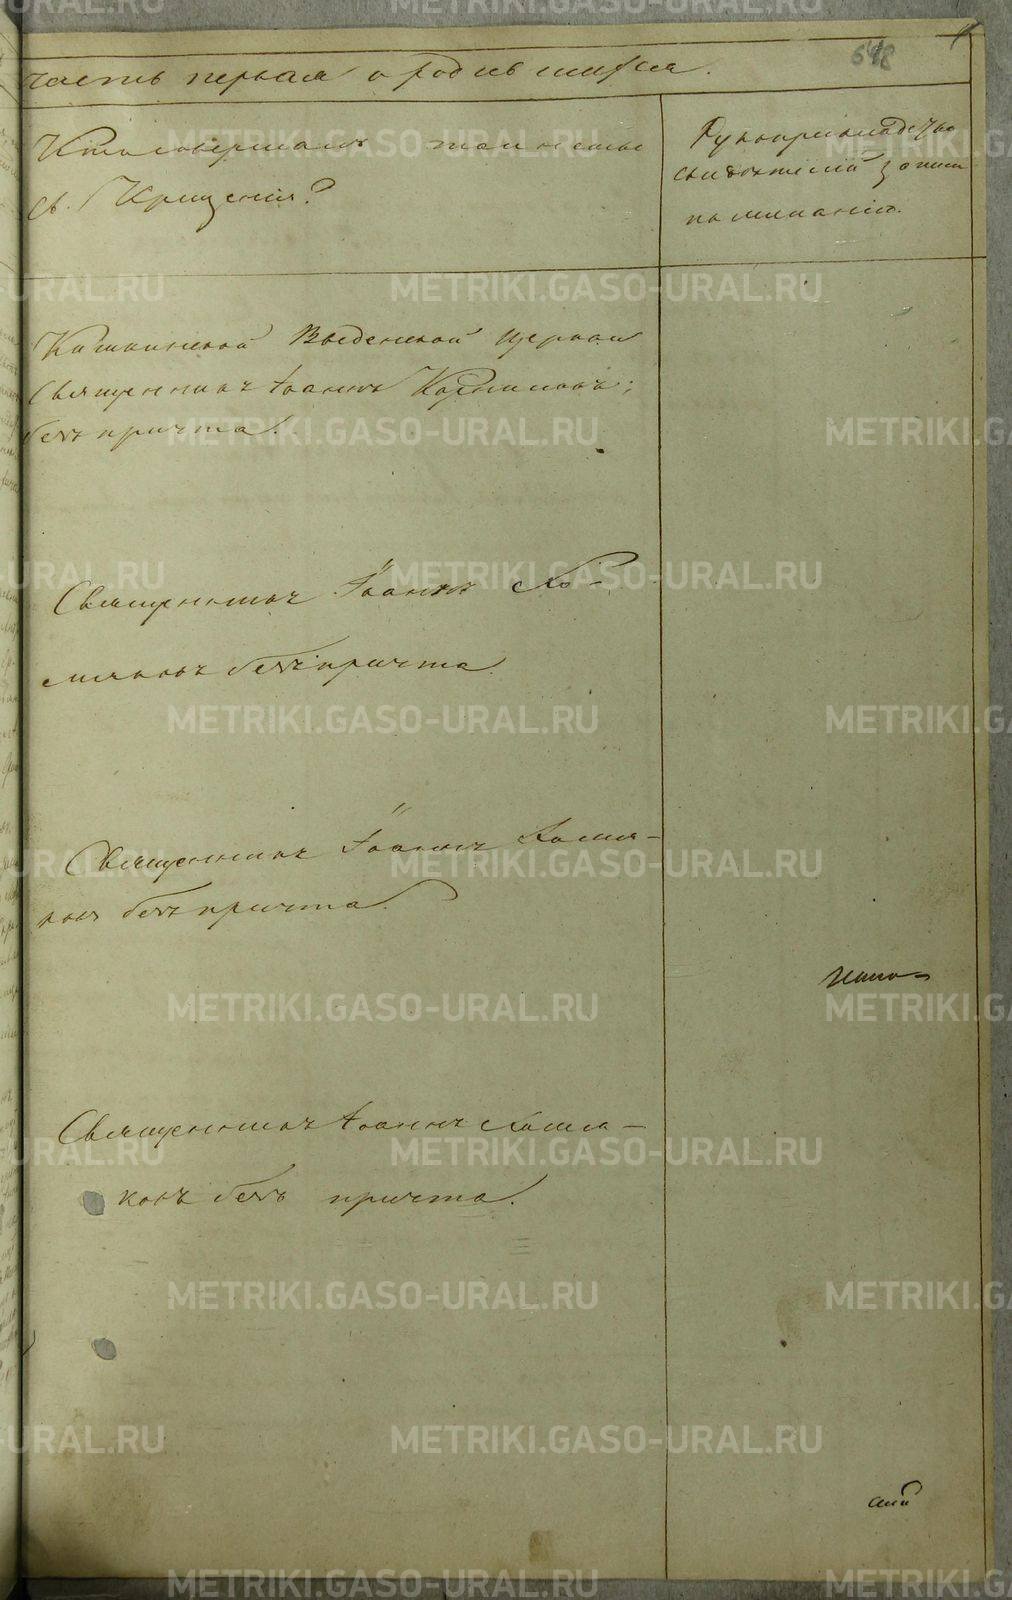 648
часть первая о родившихся.
Кто совершалъ таинство
св. Крещенія?
Рукоприкладство
свидѣтелей записи
по желанію.
Введенской церкви
Священникъ Іоаннъ Корниловъ;
безъ причта.
Священникъ Іоаннъ Хо-
мяковъ безъ причта.
Священникъ Іоаннъ Хомя-
ковъ безъ причта.
Священникъ Іоаннъ Хомя-
ковъ безъ причта.
METRIKI.GASO-URAL.RU